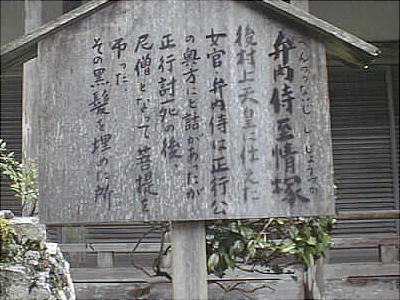 べんのないじ しじょうづか
弁内侍至情塚
後村上天皇に仕えた
女官 弁内侍は正行公
の奥方にと話があったが
正行討死の後、
尼僧となって菩提を
弔った
その黒髪を埋めた所